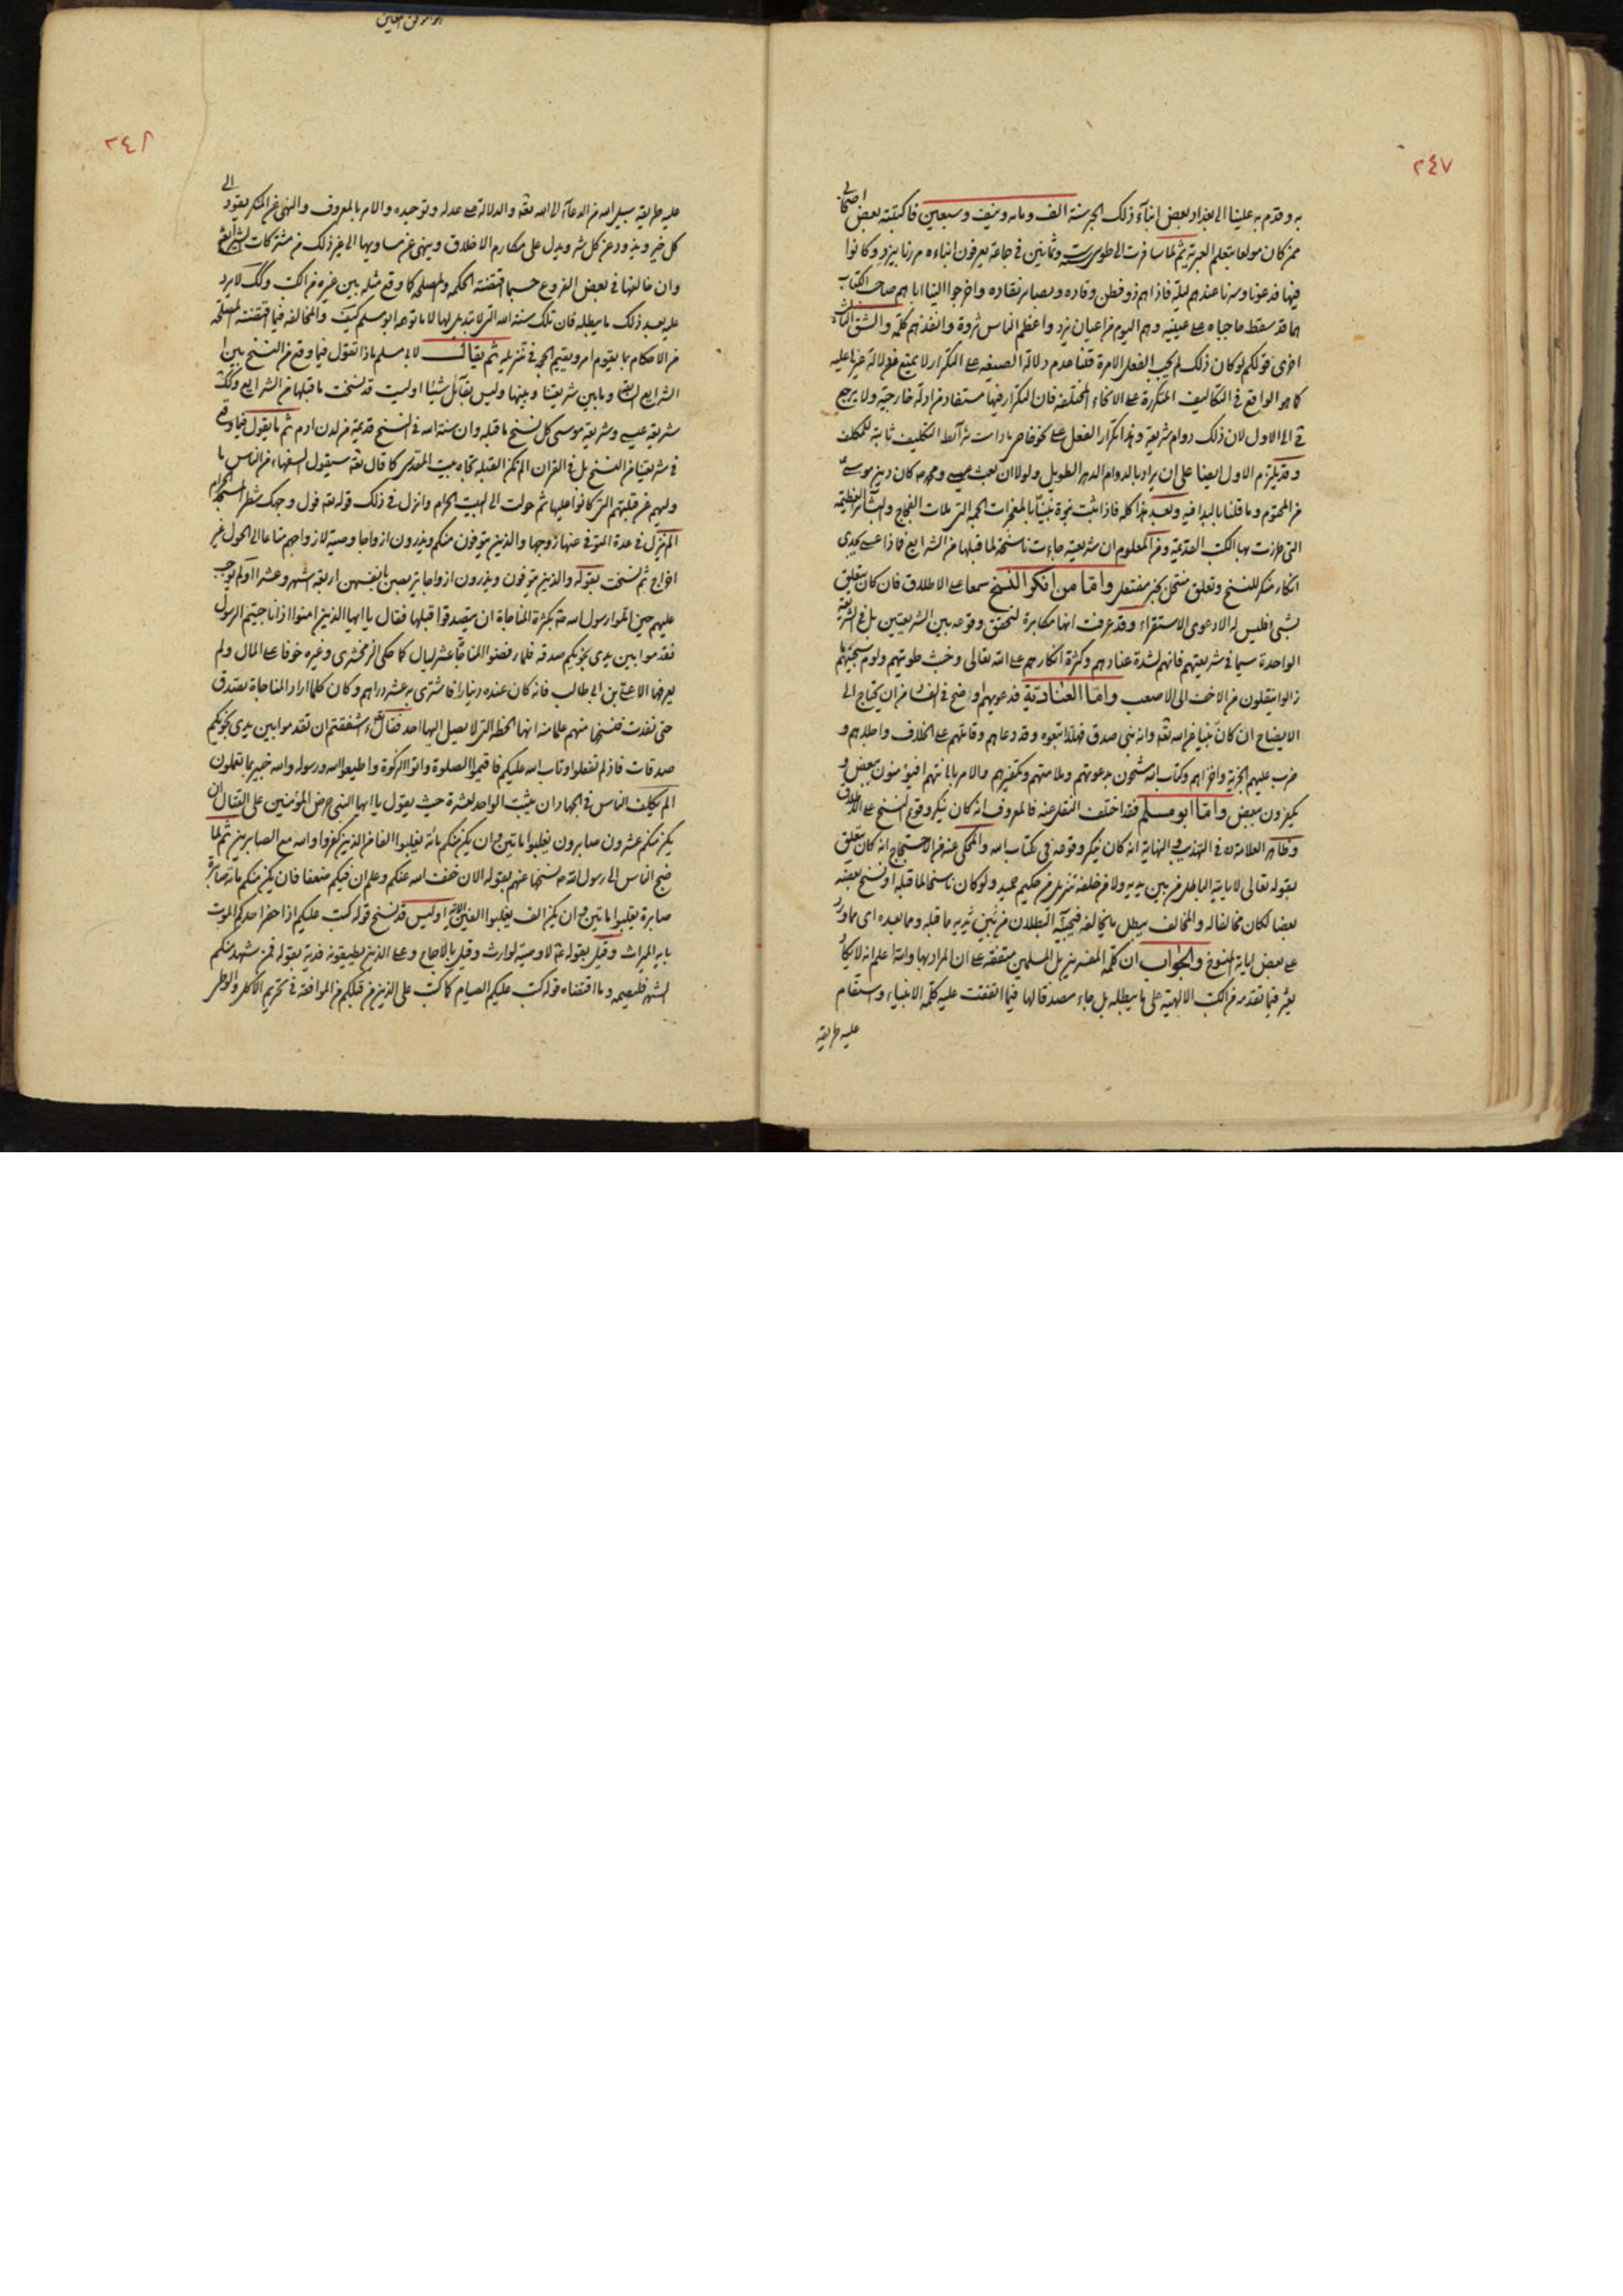 ٢٤٧
به وقدم به علينا الى بغداد بعض ابناء ذلك الحبر سنة الف ومائة ونيف وسبعين فاكتبته بعض اصحابي
ممن كان مولعا بتعلم العبرية ثم لما سافرت الى طوس سنة ست وثمانين في جماعة يعرفون انباءه مررنا بيزد وكانوا
فيها فدعونا وسرنا عندهم ليلة فاذا هم ذو فطن وقاده وبصاير نقاده واخرجوا الينا
هما قد سقط حاجباه على عينيه وهم اليوم من اعيان يزد واعظم الناس ثروة وانفذهم كلمة والشق الثاني
اخرى قولكم لو كان ذلك لم يجب الفعل الا مرة قلنا عدم دلالة الصيغة على التكرار لا يمنع من دلالة غيرها عليه
كما هو الواقع في التكاليف المتكررة على الانحاء المختلفة فان التكرار فيها مستفاد من ادلة خارجية ولا يرجع
في الى الاول لان ذلك دوام شريعة وهذا تكرار الفعل على نحو خاص ما دامت شرائط التكليف ثابتة للمكلف
وقد يلتزم الاول ايضا على ان يراد بالدوام الدهر الطويل ولولا ان بعث عيسى ومحمد ص كان دين موسى
من المحتوم وما قلنا بالبدا فيه وبعد هذا كله فاذا ثبت نبوة نبينا بالمعجزات الجمة التي ملات الفجاج والمآثر العظيمة
التي طرزت بها الكتب القديمة ومن المعلوم ان شريعته جاءت ناسخة لما قبلها من الشرايع فماذا عسى يجدي
انكار منكر للنسخ وتعلق منتحل بخبر مفتعل واما من انكر النسخ سمعا على الاطلاق فان كان يتعلق
بشئ فليس له الا دعوى الاستقراء وقد عرفت انها مكابرة لتحقق وقوعه بين الشريعتين بل في الشريعة
الواحدة سيما في شريعتهم فانهم لشدة عنادهم وكثرة انكارهم على الله تعالى وخبث طويتهم ولوم سجيتهم ما
زالوا ينقلون من الاخف الى الاصعب واما العنادية فدعويهم اوضح في الفساد من ان يحتاج الى
الايضاح ان كان نبيا من الله تعه وانه نبي صدق فهلا تبعوه وقد دعاهم وقاتلهم على الخلاف واجلاهم و
ضرب عليهم الجزية واخزاهم وكتاب الله مشحون بدعوتهم وملامتهم وتكفيرهم والامر باهانتهم افيؤمنون ببعض و
يكفرون ببعض واما ابو مسلم فقد اختلف النقل عنه فالمعروف انه كان ينكر وقوع النسخ على الاطلاق
وظاهر العلامة ره في التهذيب والنهاية انه كان ينكر وقوعه في كتاب الله والمحكى عنه من الاحتجاج انه كان يتعلق
بقوله تعالى لا ياتيه الباطل من بين يديه ولا من خلفه تنزيل من حكيم حميد ولو كان ناسخا لما قبله او نسخ بعضه
بعضا لكان مخالفا له والمخالف يبطل ما يخالفه فيجيئه البطلان من بين يديه ما قبله وما بعده اي مما ورد
على بعض اياته المنسوخ والجواب ان كلمة المفسرين بل المسلمين متفقة على ان المراد بها والله اعلم انه لا يكاد
يعثر فيما تقدمه من الكتب الالهية على ما يبطله بل جاء مصدقا لها فيما اتفقت عليه كلمة الانبياء واستقام
عليه طريقة
٢٤٨
عليه طريقة سبيل الله من الدعاء الى الله تعه والدلالة على عدله وتوحيده والامر بالمعروف والنهي عن المنكر يقود الى
كل خير ويذود عن كل شر ويدل على مكارم الاخلاق وينهى عن مساويها الى غير ذلك من مشتركات الشرايع
وان خالفها في بعض الفروع حسبما اقتضته الحكمة والمصلحة كما وقع مثله بين غيره من الكتب وكك لا يرد
عليه بعد ذلك ما يبطله فان تلك سنة الله التي لا تبديل لها لا ما توهم ابو مسلم كيف والمخالفة فيما اقتضته المصلحة
من الاحكام مما يقوم امره ويقيم الحجة في تنزيله ثم يقال لابي مسلم ماذا تقول فيما وقع من النسخ بين
الشرايع وما بين شريعتنا وبينها وليس بقائل شيئا اوليست قد نسخت ما قبلها من الشرايع وكك
شريعة عيسى وشريعة موسى كل نسخ ما قبله وان سنة الله في النسخ قديمة من لدن ادم ثم ما يقول فيما وقع
في شريعتنا من النسخ بل في القران الم تكن القبلة تجاه بيت المقدس كما قال تعه سيقول السفهاء من الناس ما
وليهم عن قبلتهم التي كانوا عليها ثم حولت الى البيت الحرام وانزل في ذلك قوله تعه فول وجهك شطر المسجد الحرام
الم ينزل في عدة المتوفى عنها زوجها والذين يتوفون منكم ويذرون ازواجا وصية لازواجهم متاعا الى الحول غير
اخراج ثم نسخت بقوله والذين يتوفون ويذرون ازواجا يتربصن بانفسهن اربعة اشهر وعشرا اولم يوجب
عليهم حين املوا رسول الله ص بكثرة المناجاة ان يتصدقوا قبلها فقال يا ايها الذين امنوا اذا ناجيتم الرسول
فقدموا بين يدي نجويكم صدقة فلما رفضوا المناجاة عشر ليال كما حكى الزمخشري وغيره خوفا على المال ولم
يعرفها الا علي بن ابي طالب فانه كان عنده دينارا فاشترى به عشر دراهم وكان كلما اراد المناجاة تصدق
حتى نفدت فنسخها منهم علما منه انها الخطة التي لا يصل اليها احد فقال ءاشفقتم ان تقدموا بين يدي نجويكم
صدقات فاذ لم تفعلوا وتاب الله عليكم فاقيموا الصلوة واتوا الزكوة واطيعوا الله ورسوله والله خبير بما تعملون
الم يكلف الناس في الجهاد ان يثبت الواحد لعشرة حيث يقول يا ايها النبي حرض المؤمنين على القتال ان
يكن منكم عشرون صابرون يغلبوا ماتين وان يكن منكم مائة يغلبوا الفا من الذين كفروا والله مع الصابرين ثم لما
ضج الناس الى رسول الله ص نسخها عنهم بقوله الان خفف الله عنكم وعلم ان فيكم ضعفا فان يكن منكم مائة صابرة
صابرة يغلبوا ماتين وان يكن الف يغلبوا الفين الاية اوليس قد نسخ قوله كتب عليكم اذا حضر احدكم الموت
باية الميراث وقيل بقوله ع لا وصية لوارث وقيل بالاجماع وعلى الذين يطيقونه فدية بقوله فمن شهد منكم
الشهر فليصمه وما اقتضاه قوله كتب عليكم الصيام كما كتب على الذين من قبلكم من الموافقة في تحريم الاكل والوطى